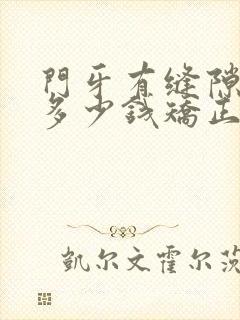 門牙有縫隙
多少錢矯正
凱尔文霍尔茨